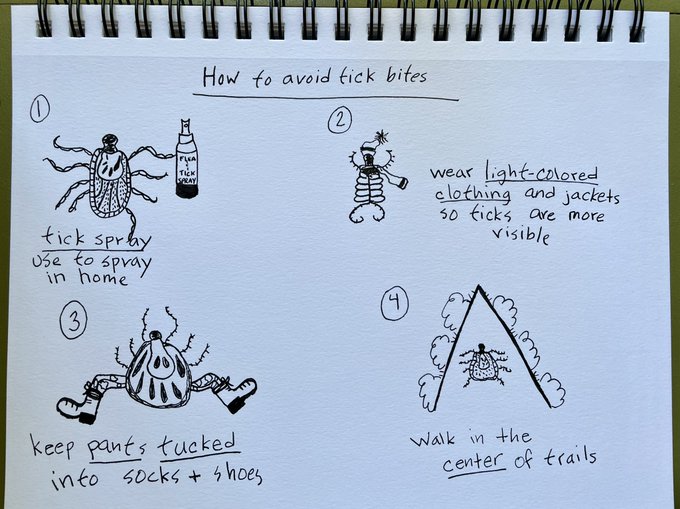 How to avoid tick bites
1
FLEA
+
TICK
SPRAY
tick spray
use to spray
in home
2
wear light-colored
clothing and jackets
so ticks are more
visible
3
keep pants tucked
into socks + shoes
4
Walk in the
center of trails